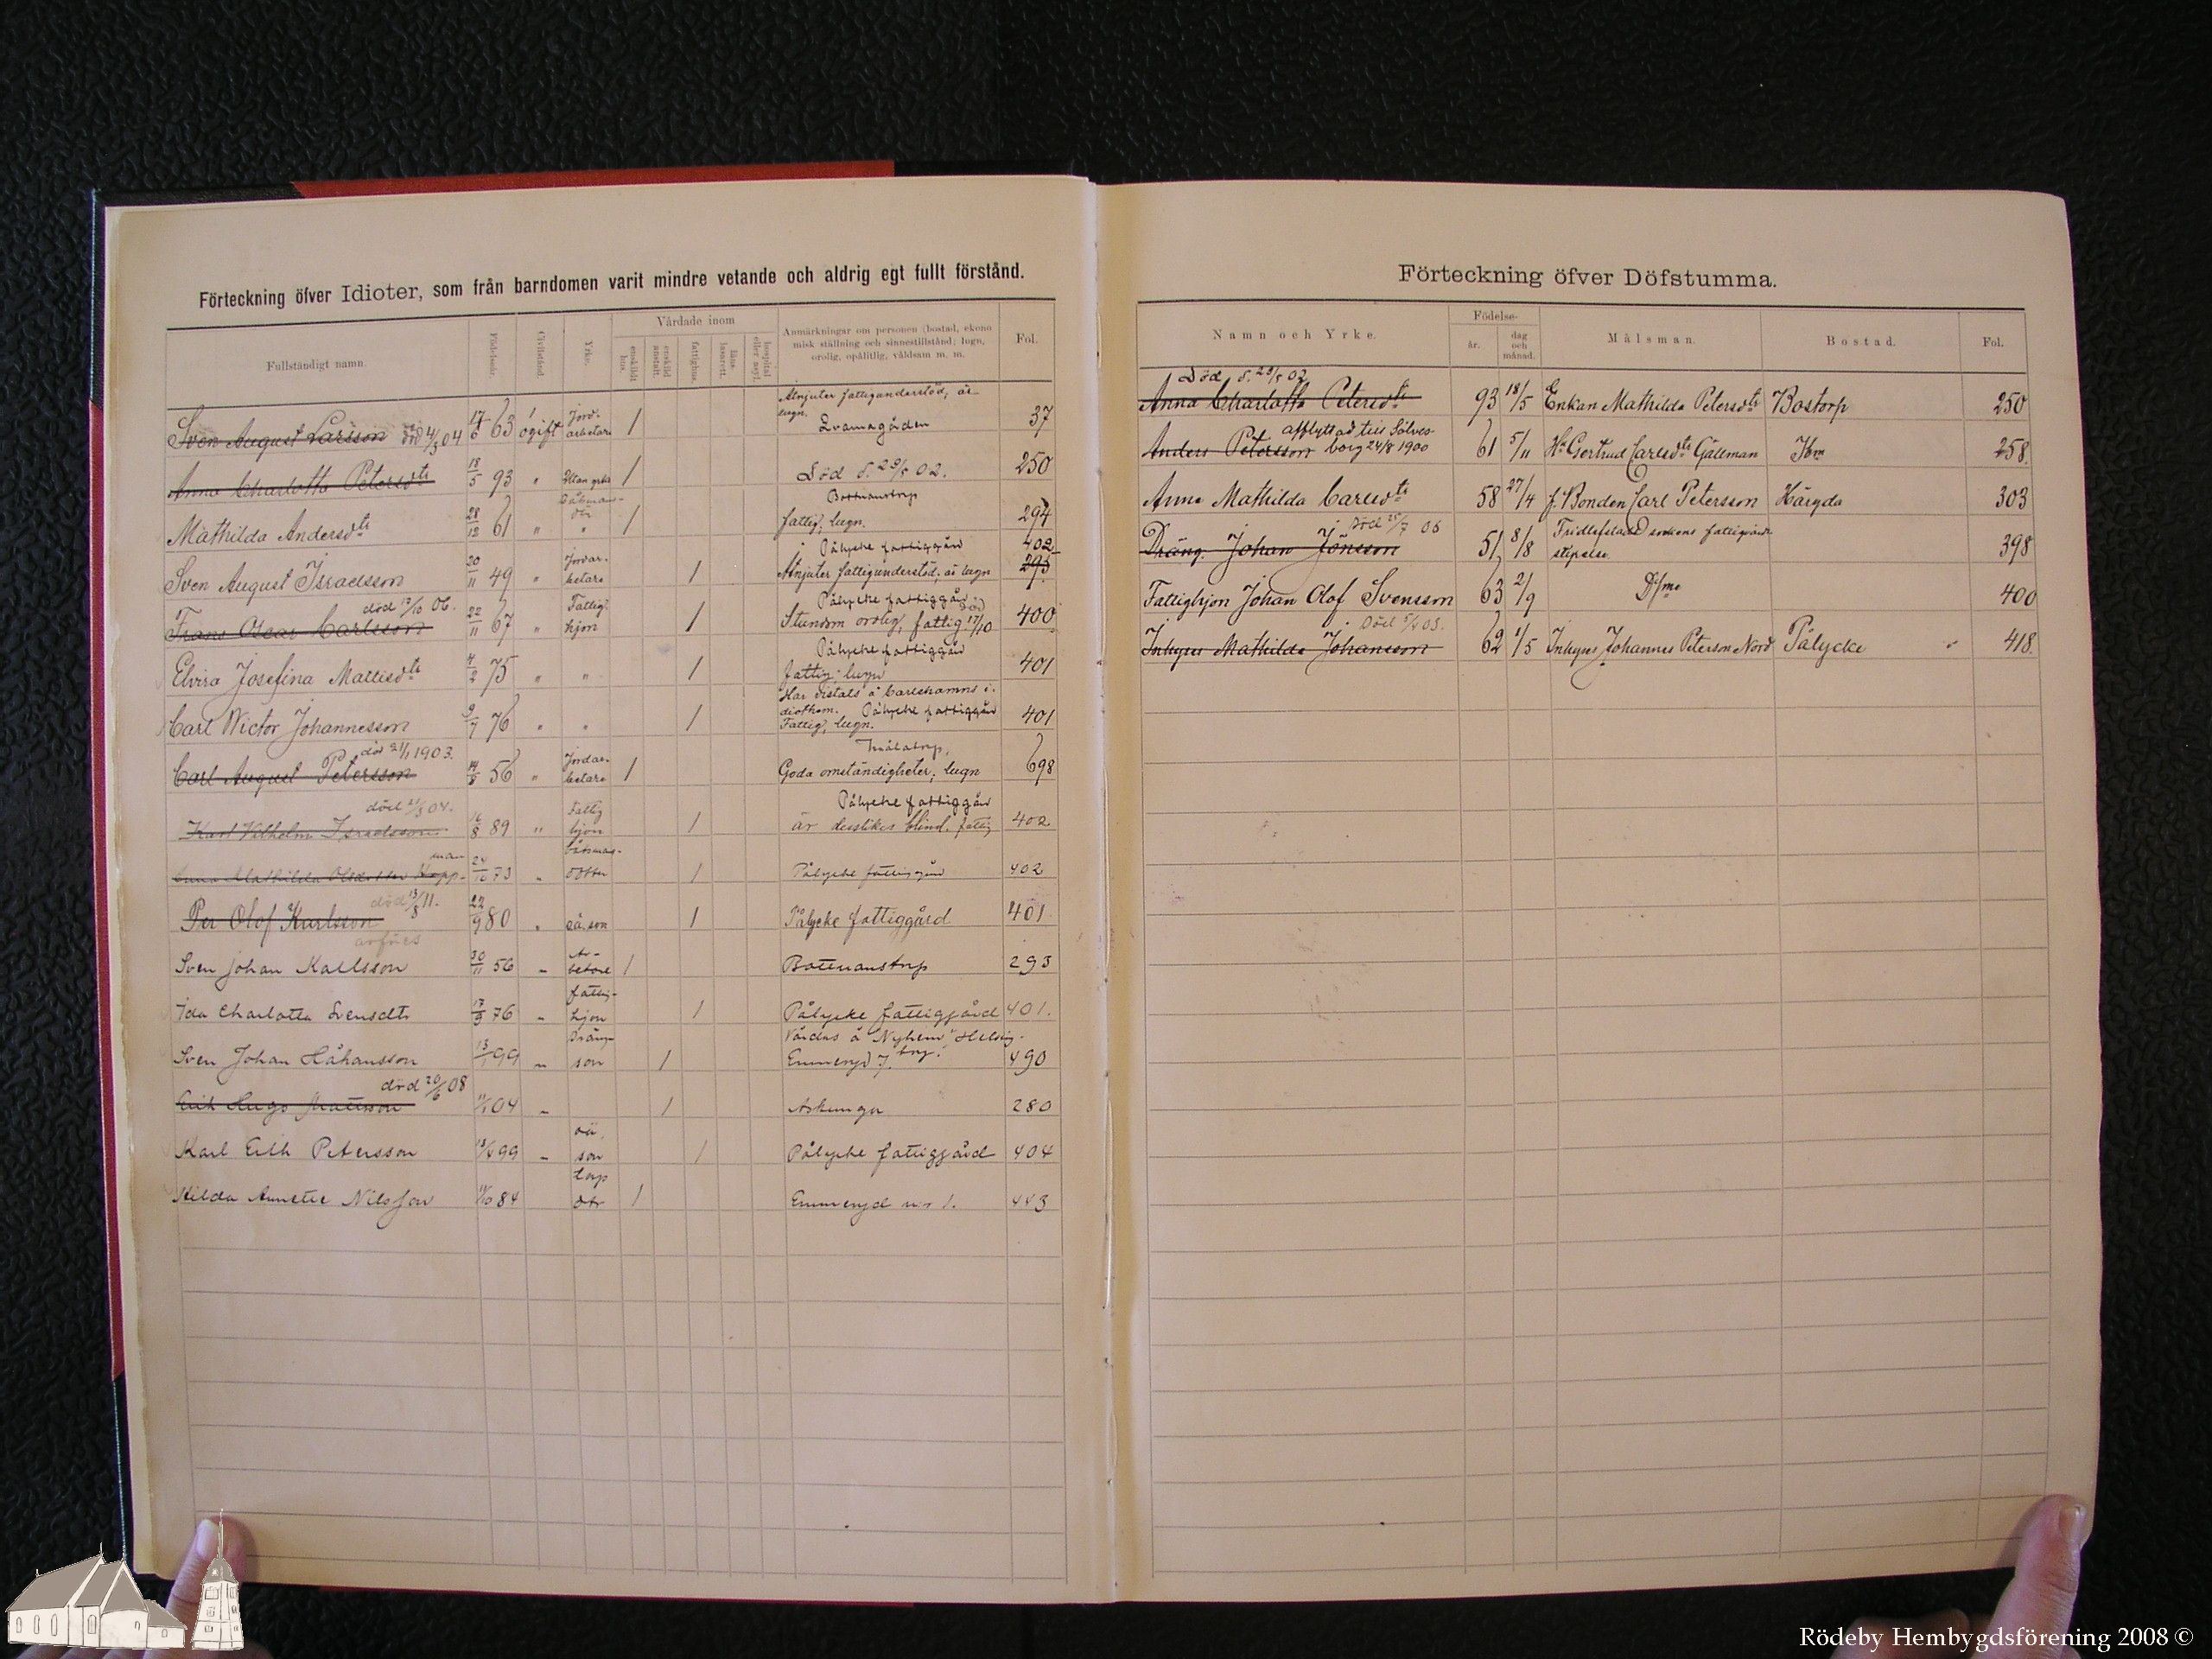 Förteckning öfver Idioter, som från barndomen varit mindre vetande och aldrig egt fullt förstånd.
Fullständigt namn. Födelseår. Civilstånd. Yrke. Vårdade inom enskildt hus. enskild anstalt. fattighus. läns-lasarett. hospital eller asyl. Anmärkningar om personen (bostad, ekonomisk ställning och sinnestillstånd; lugn, orolig, opålitlig, våldsam m. m. Fol.
Atnjuter fattigunderstöd, är lugn.
Sven August Larsson död 4/3 04 17/6 63 ogift Jord-arbetare 1 37
Anna Charlotta Petersdtr 18/5 93 " 1 Död d. 29/5 02. 250
Mathilda Andersdtr 28/12 61 " " 1 fattig, lugn. 294
Sven August Israelsson 20/11 49 " Jordar-betare 1 Pålycke fattiggård Atnjuter fattigunderstöd. är lugn 402 293
Frans Oscar Carlsson död 17/10 06. 22/11 67 " Fattig-hjon 1 Pålycke fattiggård Stundom orolig, fattig. 17/10 400
Elvira Josefina Mattisdtr 4/2 75 " " 1 Pålycke fattiggård fattig, lugn 401
Carl Wictor Johannesson 9/7 76 " " 1 Har vistats å Carlshamns idiothem. Pålycke fattiggård Fattig, lugn. 401
Carl August Petersson död 21/1 1903. 56 " Jordar-betare 1 Goda omständigheter, lugn 698
Karl Vilhelm Israelsson 89 " Fattig hjon 1 Pålycke fattiggård är blind. fattig 402
24/10 73 " 1 Pålycke fattiggård 402
Per Olof Karlsson död 13/8 11. 22/9 80 " oä. son 1 Pålycke fattiggård 401
Sven Johan Karlsson 30/11 56 " Ar-betare 1 293
Ida Charlotta Svensdtr 17/9 76 " fattig-hjon 1 Pålycke fattiggård 401.
Sven Johan Håkansson 99 " Dräng-son 1 Vårdas å "Nyhem" Helsing-borg. Emmeryd 7. 490
Erik Hugo Mattsson död 20/6 08 04 " 1 Askunga 280
Karl Erik Petersson 99 " oä. son 1 Pålycke fattiggård 404
Hilda Annette Nilsson 84 torp dtr 1 Emmeryd 443
Förteckning öfver Döfstumma.
Namn och Yrke. Födelse- år. dag och månad. Målsman. Bostad. Fol.
Död d. 29/5 02
Anna Charlotta Petersdtr 93 18/5 Enkan Mathilda Petersdtr Bostorp 250
afflyttad till Sölves-
Anders Petersson borg 24/8 1900 61 5/11 Gertrud Carlsdtr Gällman 258.
Anna Mathilda Carlsdtr 58 27/4 f. Bonden Carl Petersson Häryda 303
Död 25/7 06
Dräng. Johan Jönsson 51 8/8 Fridlefstads sockens fattigvårds-
styrelse. 398
Fattighjon Johan Olof Svensson 63 2/9 D:o 400
Inhyses Mathilda Johansson 62 1/5 Inhyses Johannes Peterson Nord Pålycke 418.
Rödeby Hembygdsförening 2008 ©